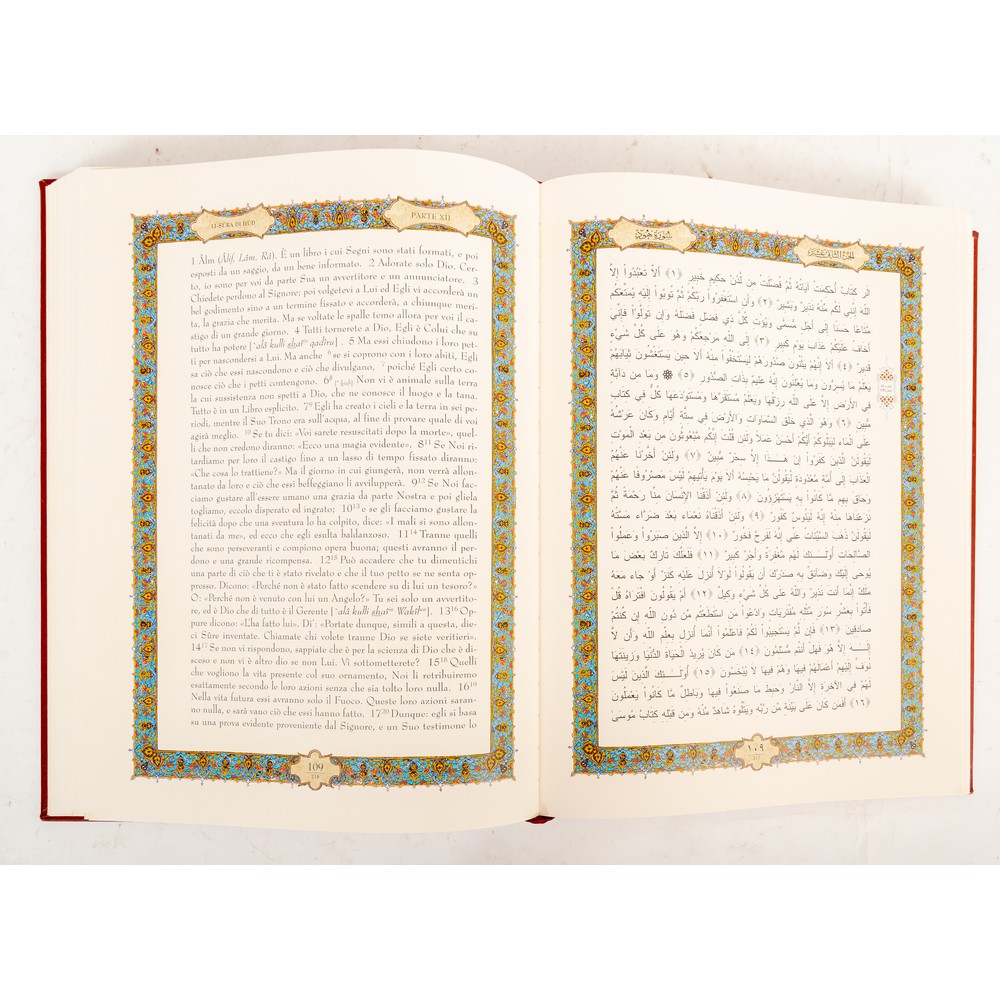 11-SÛRA DI HÛD
PARTE XII
1 Àlm (Âlif, Lâm, Râ). È un libro i cui Segni sono stati formati, e poi
esposti da un saggio, da un bene informato. 2 Adorate solo Dio. Cer-
to, io sono per voi da parte Sua un avvertitore e un annunciatore. 3
Chiedete perdono al Signore; poi volgetevi a Lui ed Egli vi accorderà un
bel godimento sino a un termine fissato e accorderà, a chiunque meri-
ta, la grazia che merita. Ma se voltate le spalle temo allora per voi il ca-
stigo di un grande giorno. 4 Tutti tornerete a Dio, Egli è Colui che su
tutto ha potere ['alâ kulli shaî qadîru]. 5 Ma essi chiudono i loro pet-
ti per nascondersi a Lui. Ma anche 6 se si coprono con i loro abiti, Egli
sa ciò che essi nascondono e ciò che divulgano, 7 poiché Egli certo co-
nosce ciò che i petti contengono. 6 8 Non vi è animale sulla terra
la cui sussistenza non spetti a Dio, che ne conosce il luogo e la tana.
Tutto è in un Libro esplicito. 7 9 Egli ha creato i cieli e la terra in sei pe-
riodi, mentre il Suo Trono era sull'acqua, al fine di provare quale di voi
agirà meglio. 10 Se tu dici: «Voi sarete resuscitati dopo la morte», quel-
li che non credono diranno: «Ecco una magia evidente». 8 11 Se Noi ri-
tardiamo per loro il castigo fino a un lasso di tempo fissato diranno:
«Che cosa lo trattiene?» Ma il giorno in cui giungerà, non verrà allon-
tanato da loro e ciò che essi beffeggiano li avvilupperà. 9 12 Se Noi fac-
ciamo gustare all'essere umano una grazia da parte Nostra e poi gliela
togliamo, eccolo disperato ed ingrato; 10 13 e se gli facciamo gustare la
felicità dopo che una sventura lo ha colpito, dice: «I mali si sono allon-
tanati da me», ed ecco che egli esulta baldanzoso. 11 14 Tranne quelli
che sono perseveranti e compiono opera buona; questi avranno il per-
dono e una grande ricompensa. 12 15 Può accadere che tu dimentichi
una parte di ciò che ti è stato rivelato e che il tuo petto se ne senta op-
presso. Dicono: «Perché non è stato fatto scendere su di lui un tesoro?»
O: «Perché non è venuto con lui un Angelo?» Tu sei solo un avvertito-
re, ed è Dio che di tutto è il Gerente ['alâ kulli shaî Wakîl]. 13 16 Op-
pure dicono: «L'ha fatto lui». Di': «Portate dunque, simili a questa, die-
ci Sûre inventate. Chiamate chi volete tranne Dio se siete veritieri».
14 17 Se non vi rispondono, sappiate che è per la scienza di Dio che è di-
sceso e non vi è altro dio se non Lui. Vi sottometterete? 15 18 Quelli
che vogliono la vita presente col suo ornamento, Noi li retribuiremo
esattamente secondo le loro azioni senza che sia tolto loro nulla. 16 19
Nella vita futura essi avranno solo il Fuoco. Queste loro azioni saran-
no nulla, e sarà vano ciò che essi hanno fatto. 17 20 Dunque: egli si basa
su una prova evidente proveniente dal Signore, e un Suo testimone lo
109
سورة هود
الجزء الثاني عشر
الر كتابٌ أُحكمت آياتهُ ثُمَّ فُصّلت من لّدُن حكيمٍ خبيرٍ ﴿١﴾ ألا تعبُدُواْ إلاّ
اللّه إنّني لكُم مّنهُ نذيرٌ وبشيرٌ ﴿٢﴾ وأن استغفرُواْ ربّكُم ثُمّ تُوبُواْ إليه يُمتّعكُم
مّتاعًا حسنًا إلى أجلٍ مُّسمًّى ويُؤت كُلّ ذي فضلٍ فضلهُ وإن تولّواْ فإنّي
أخافُ عليكُم عذاب يومٍ كبيرٍ ﴿٣﴾ إلى اللّه مرجعُكُم وهُو على كُلّ شيءٍ
قديرٌ ﴿٤﴾ ألا إنّهُم يثنُون صُدُورهُم ليستخفُواْ منهُ ألا حين يستغشُون ثيابهُم
يعلمُ ما يُسرُّون وما يُعلنُون إنّهُ عليمٌ بذات الصُّدُور ﴿٥﴾ ۞ وما من دآبّةٍ
في الأرض إلاّ على اللّه رزقُها ويعلمُ مُستقرّها ومُستودعها كُلٌّ في كتابٍ
مُّبينٍ ﴿٦﴾ وهُو الّذي خلق السّماوات والأرض في ستّة أيّامٍ وكان عرشُهُ
على الماء ليبلُوكُم أيُّكُم أحسنُ عملاً ولئن قُلت إنّكُم مّبعُوثُون من بعد الموت
ليقُولنّ الّذين كفرُواْ إن هـذا إلاّ سحرٌ مُّبينٌ ﴿٧﴾ ولئن أخّرنا عنهُمُ
العذاب إلى أُمّةٍ مّعدُودةٍ لّيقُولُنّ ما يحبسُهُ ألا يوم يأتيهم ليس مصرُوفًا عنهُم
وحاق بهم مّا كانُواْ به يستهزؤُون ﴿٨﴾ ولئن أذقنا الإنسان منّا رحمةً ثُمّ
نزعناها منهُ إنّهُ ليئُوسٌ كفُورٌ ﴿٩﴾ ولئن أذقناهُ نعماء بعد ضرّاء مسّتهُ
ليقُولنّ ذهب السّيّئاتُ عنّي إنّهُ لفرحٌ فخُورٌ ﴿١٠﴾ إلاّ الّذين صبرُواْ وعملُواْ
الصّالحات أُولـئك لهُم مّغفرةٌ وأجرٌ كبيرٌ ﴿١١﴾ فلعلّك تاركٌ بعض ما
يُوحى إليك وضآئقٌ به صدرُك أن يقُولُواْ لولا أُنزل عليه كنزٌ أو جاء معهُ
ملكٌ إنّما أنت نذيرٌ واللّهُ على كُلّ شيءٍ وكيلٌ ﴿١٢﴾ أم يقُولُون افتراهُ قُل
فأتُواْ بعشر سُورٍ مّثله مُفترياتٍ وادعُواْ من استطعتُم مّن دُون اللّه إن كُنتُم
صادقين ﴿١٣﴾ فإن لّم يستجيبُواْ لكُم فاعلمُواْ أنّما أُنزل بعلم اللّه وأن لاّ
إلـه إلاّ هُو فهل أنتُم مُّسلمُون ﴿١٤﴾ من كان يُريدُ الحياة الدُّنيا وزينتها
نُوفّ إليهم أعمالهُم فيها وهُم فيها لا يُبخسُون ﴿١٥﴾ أُولـئك الّذين ليس
لهُم في الآخرة إلاّ النّارُ وحبط ما صنعُواْ فيها وباطلٌ مّا كانُواْ يعملُون
﴿١٦﴾ أفمن كان على بيّنةٍ مّن رّبّه ويتلُوهُ شاهدٌ مّنهُ ومن قبله كتابُ مُوسى
١٠٩